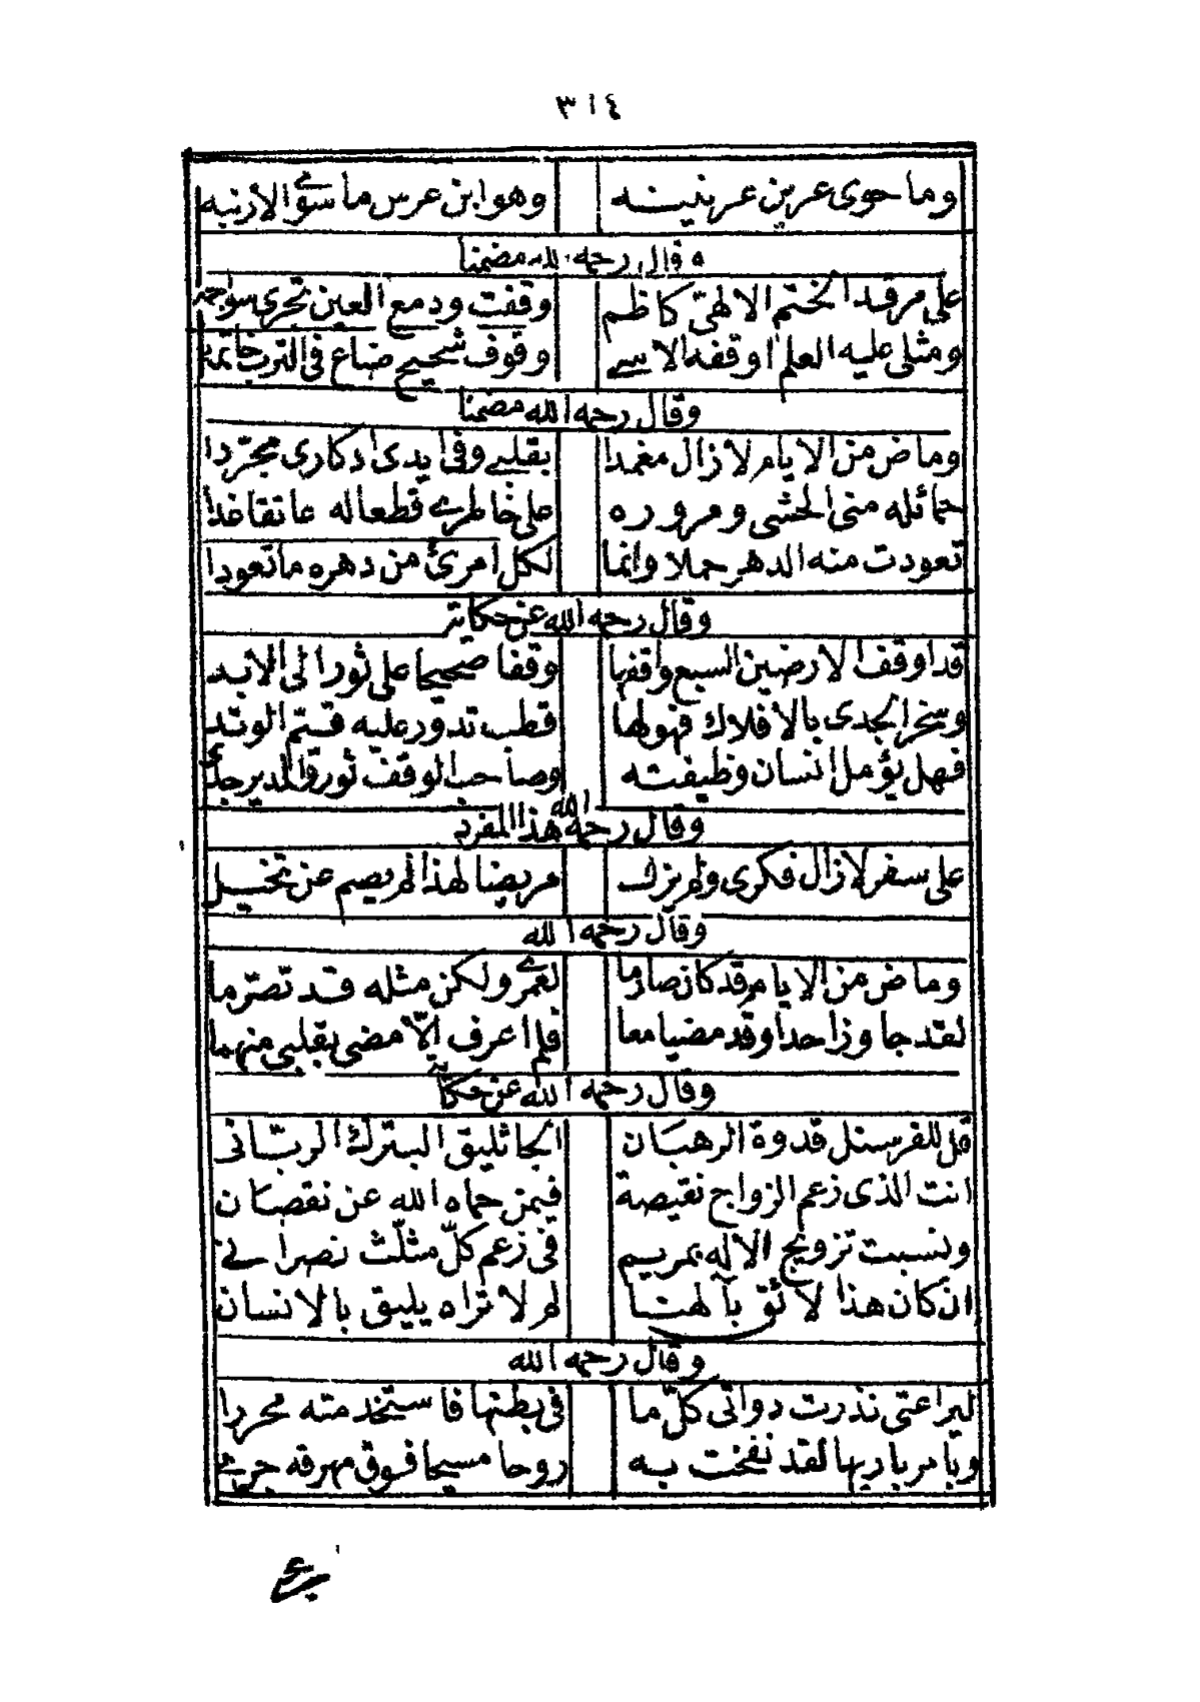 ٣١٤
وما حوى عرين عرنينه وهو ابن عرس ما سوى الارنبه
وقال رحمه الله مضمنا
على مرقد الختم الالهىّ كاظم وقفت ودمع العين تجرى سواجمه
ومثلى عليه العلم اوقفه الاسى وقوف شحيح ضاع فى الترب خاتمه
وقال رحمه الله مضمنا
وماض من الايام لا زال مغمدا بقلبى وفى ايدى ادكارى مجرّدا
حمائله منى الحشى ومروره على خاطرى قطعا له عاتقا غدا
تعودت منه الدهر حملا وانما لكل امرئ من دهره ما تعودا
وقال رحمه الله عن حكاية
قد اوقف الارضين السبع واقفها وقفا صحيحا على ثور الى الابد
وسخر الجدى بالافلاك فهولها قطب تدور عليه قسّم الوتد
فهل يؤمل انسان وظيفته وصاحب الوقف ثور والمدير جدى
وقال رحمه الله هذا المفرد
على سفر لا زال فكرى ولم يزل مريضا لهذا لم يصم عن تخيل
وقال رحمه الله
وماض من الايام قد كان صارما لعمرى ولكن مثله قد تصرّما
لقد جاوزا حدا وقد مضيا معا فلم اعرف الّا مضى بقلبى منهما
وقال رحمه الله عن حكاية
قل للفرسنل قدوة الرهبان الجاثليق البترك الربّانى
انت الذى زعم الزواج نقيصة فيمن حماه الله عن نقصان
ونسبت تزويج الاله بمريم فى زعم كلّ مثلّث نصرانى
ان كان هذا لائق بآلهنا لم لا تراه يليق بالانسان
وقال رحمه الله
ليراعتى نذرت دواتى كلّ ما فى بطنها فاستخدمته محررا
وبامر باريها لقد نفخت به روحا مسيحا فوق مهرقه جرى